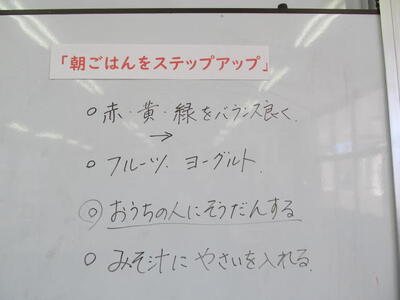 「朝ごはんをステップアップ」
○赤・黄・緑をバランス良く.
→
○フルーツ、ヨーグルト.
◎おうちの人にそうだんする
○みそ汁にやさいを入れる.